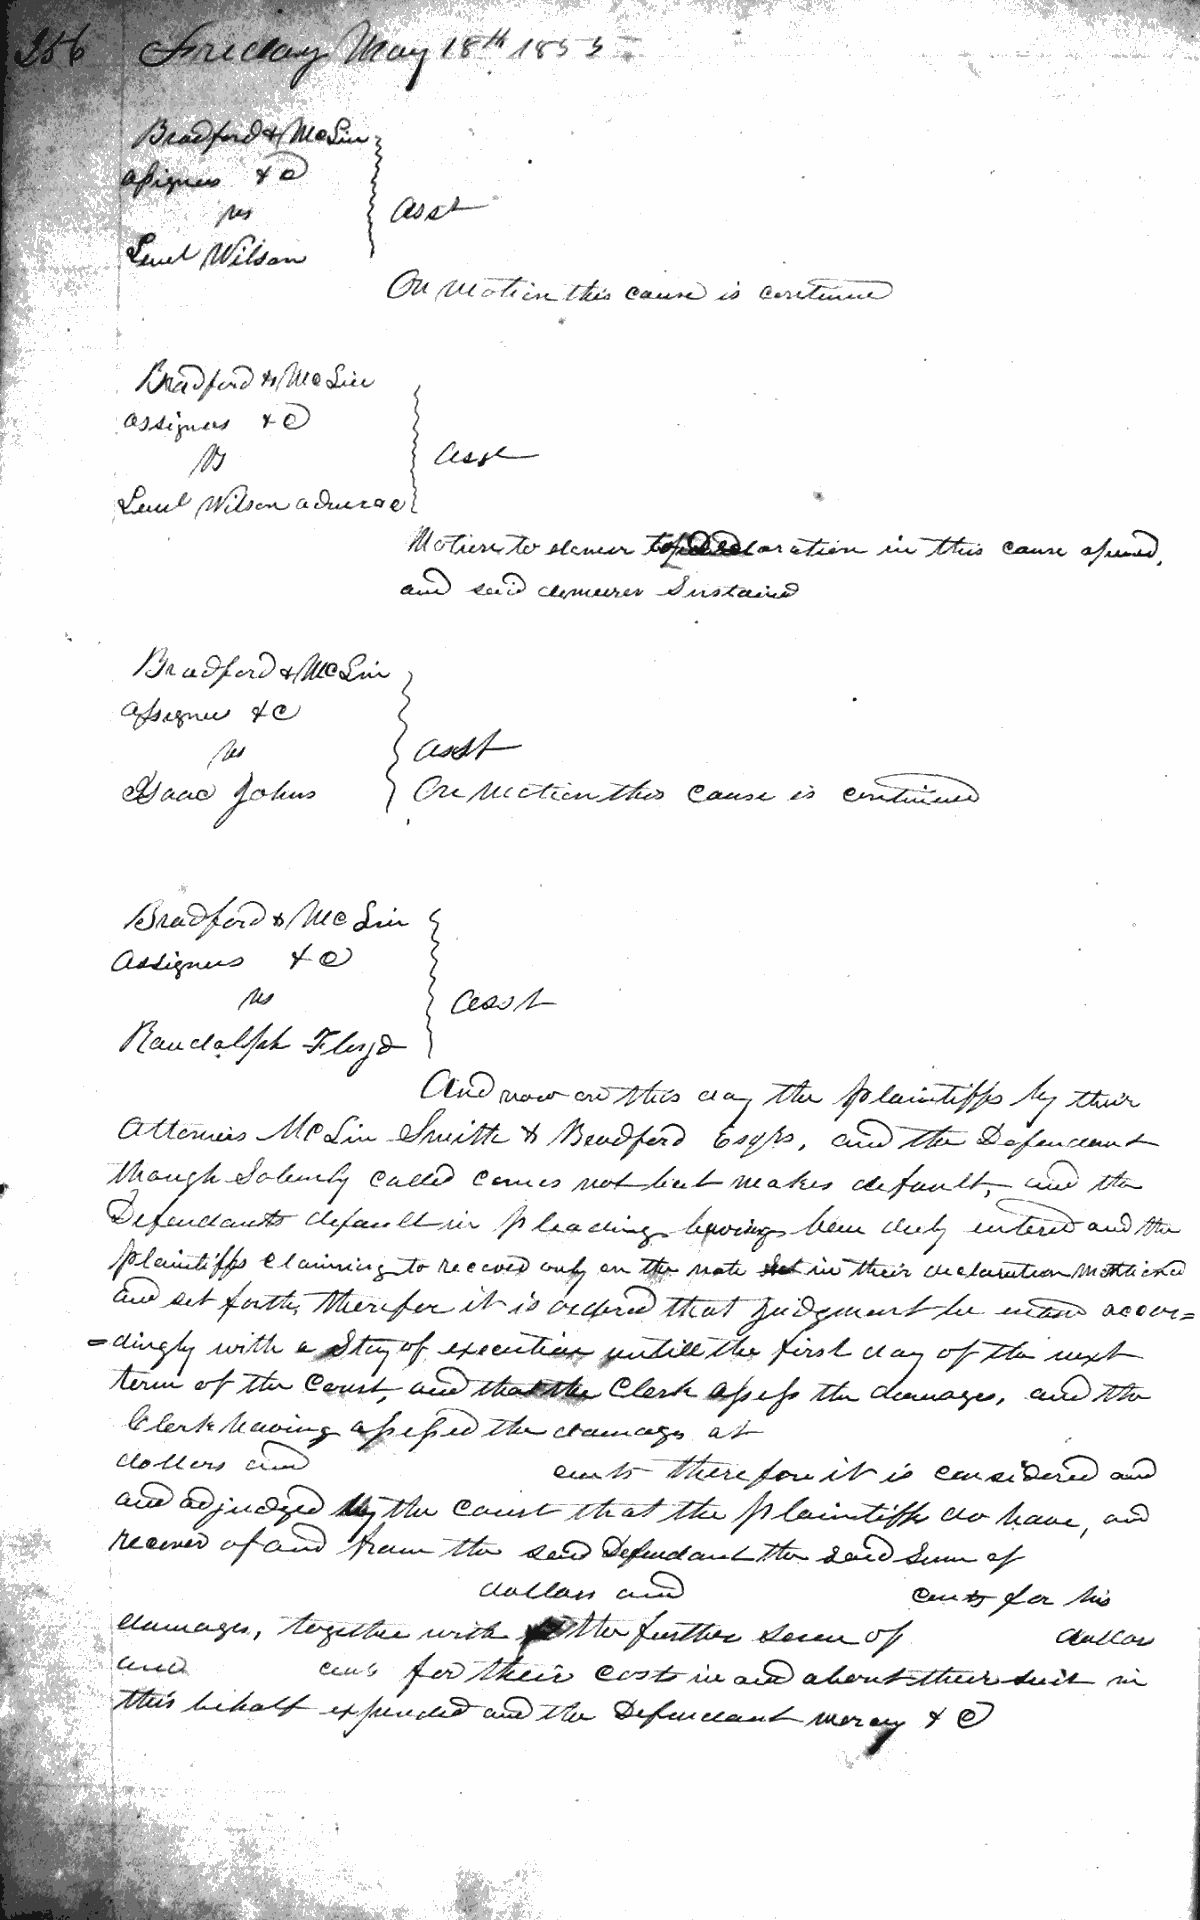 256 Friday May 18th 1855
Bradford & McLin
assignees &C
vs
Asst
Leml Wilson
On motion this cause is continued
Bradford & McLin
assignees &C
vs
Asst
Leml Wilson
Motion to demur to declaration in this cause opened,
and said demurrer Sustained
Bradford & McLin
assignees &C
vs
asst
Isaac Johns
On Motion this cause is continued
Bradford & McLin
Assignees &C
vs
Asst
Randolph Floyd
And now on this day the plaintiffs by their
Attornies McLin Smith & Bradford Esqrs, and the Defendant
though Solemnly called comes not but makes default, and the
Defendants default in pleading having been duly entered and the
plaintiffs claiming to recover only on the note in their declaration mentioned
and set forth, therefor it is ordered that Judgment be accor=
=dingly with a Stay of execution untill the first day of the next
term of the Court, and that the Clerk assess the damages, and the
Clerk having assessed the damages at
dollars and cents therefore it is considered and
and adjudged by the court that the plaintiffs do have, and
recover of and from the said Defendant the said Sum of
dollars and cents for his
damages, together with the further sum of dollars
and cents for their costs in and about their suit in
this behalf expended and the Defendant mercy &C